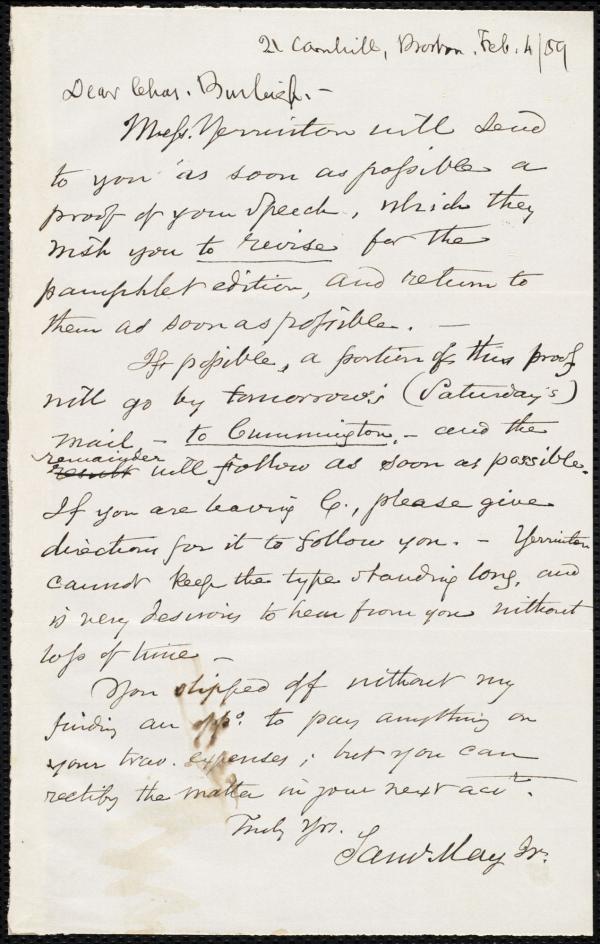 21 Cornhill, Boston. Feb. 4/59
Dear Chas. Burleigh. —
Messrs. Yerrinton will send
to you as soon as possible a
proof of your Speech, which they
wish you to revise for the
pamphlet edition, and return to
them as soon as possible. —
If possible, a portion of this proof
will go by tomorrow's (Saturday's)
mail, — to Cummington, — and the
remainder
result will follow as soon as possible.
If you are leaving C., please give
directions for it to follow you. — Yerrinton
cannot keep the type standing long, and
is very desirous to hear from you without
loss of time —
You slipped off without my
finding an oppo. to pay anything on
your trav. expenses; but you can
rectify the matter in your next acct.
Truly Yrs.
Saml. May Jr.